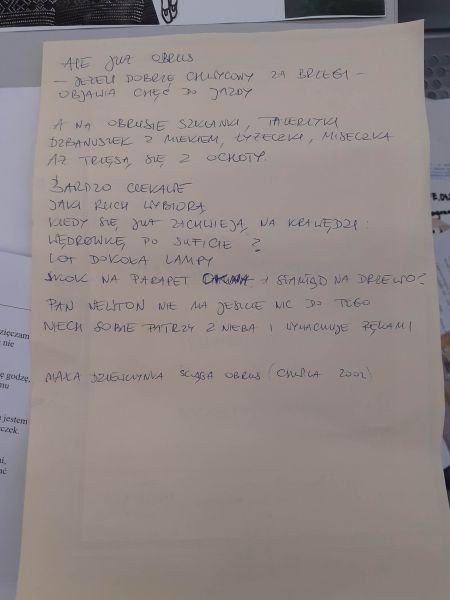 ALE JUŻ OBRUS
– JEŻELI DOBRZE CHWYCONY ZA BRZEGI –
OBJAWIA CHĘĆ DO JAZDY
A NA OBRUSIE SZKLANKI, TALERZYKI
DZBANUSZEK Z MLEKIEM, ŁYŻECZKI, MISECZKA
AŻ TRZĘSĄ SIĘ Z OCHOTY.
BARDZO CIEKAWE
JAKI RUCH WYBIORĄ
KIEDY SIĘ JUŻ ZACHWIEJĄ NA KRAWĘDZI:
WĘDRÓWKĘ PO SUFICIE ?
LOT DOKOŁA LAMPY
SKOK NA PARAPET I STAMTĄD NA DRZEWO?
PAN NEWTON NIE MA JESZCZE NIC DO TEGO
NIECH SOBIE PATRZY Z NIEBA I WYMACHUJE RĘKAMI
MAŁA DZIEWCZYNKA ŚCIĄGA OBRUS (CHWILA 2002)
zięczam
nie
godzę,
mu
jestem
czek.